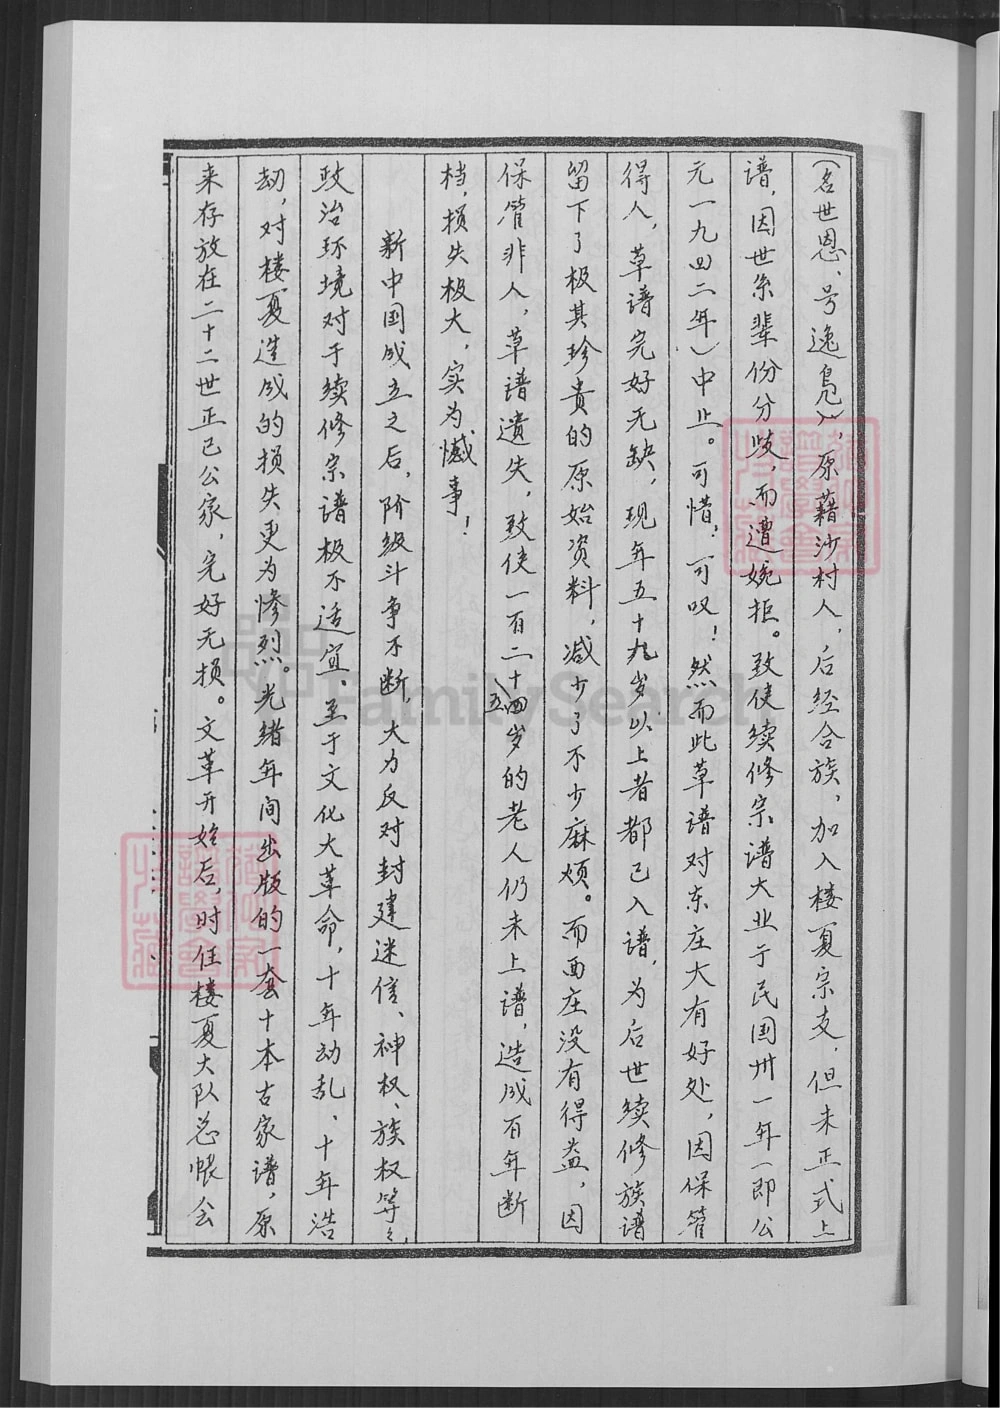 (名世恩、号逸凫)原藉沙村人，后经合族，加入楼夏宗支，但未正式上
谱，因世系辈份分歧，而遭婉拒。致使续修宗谱大业于民国卅一年—即公
元一九四二年)中止。可惜！可叹！然而此草谱对东庄大有好处，因保管
得人，草谱完好无缺，现年五十九岁以上者都已入谱，为后世续修族谱
留下了极其珍贵的原始资料，减少了不少麻烦。而西庄没有得益，因
保管非人，草谱遗失，致使一百二十四五岁的老人仍未上谱，造成百年断
档，损失极大，实为憾事！
新中国成立之后，阶级斗争不断，大力反对封建迷信、神权、族权等々，
政治环境对于续修宗谱极不适宜、至于文化大革命，十年动乱、十年浩
劫，对楼夏造成的损失更为惨烈。光绪年间出版的一套十本古家谱，原
来存放在二十二世正已公家，完好无损。文革开始后，时任楼夏大队总帐会
FamilySearch